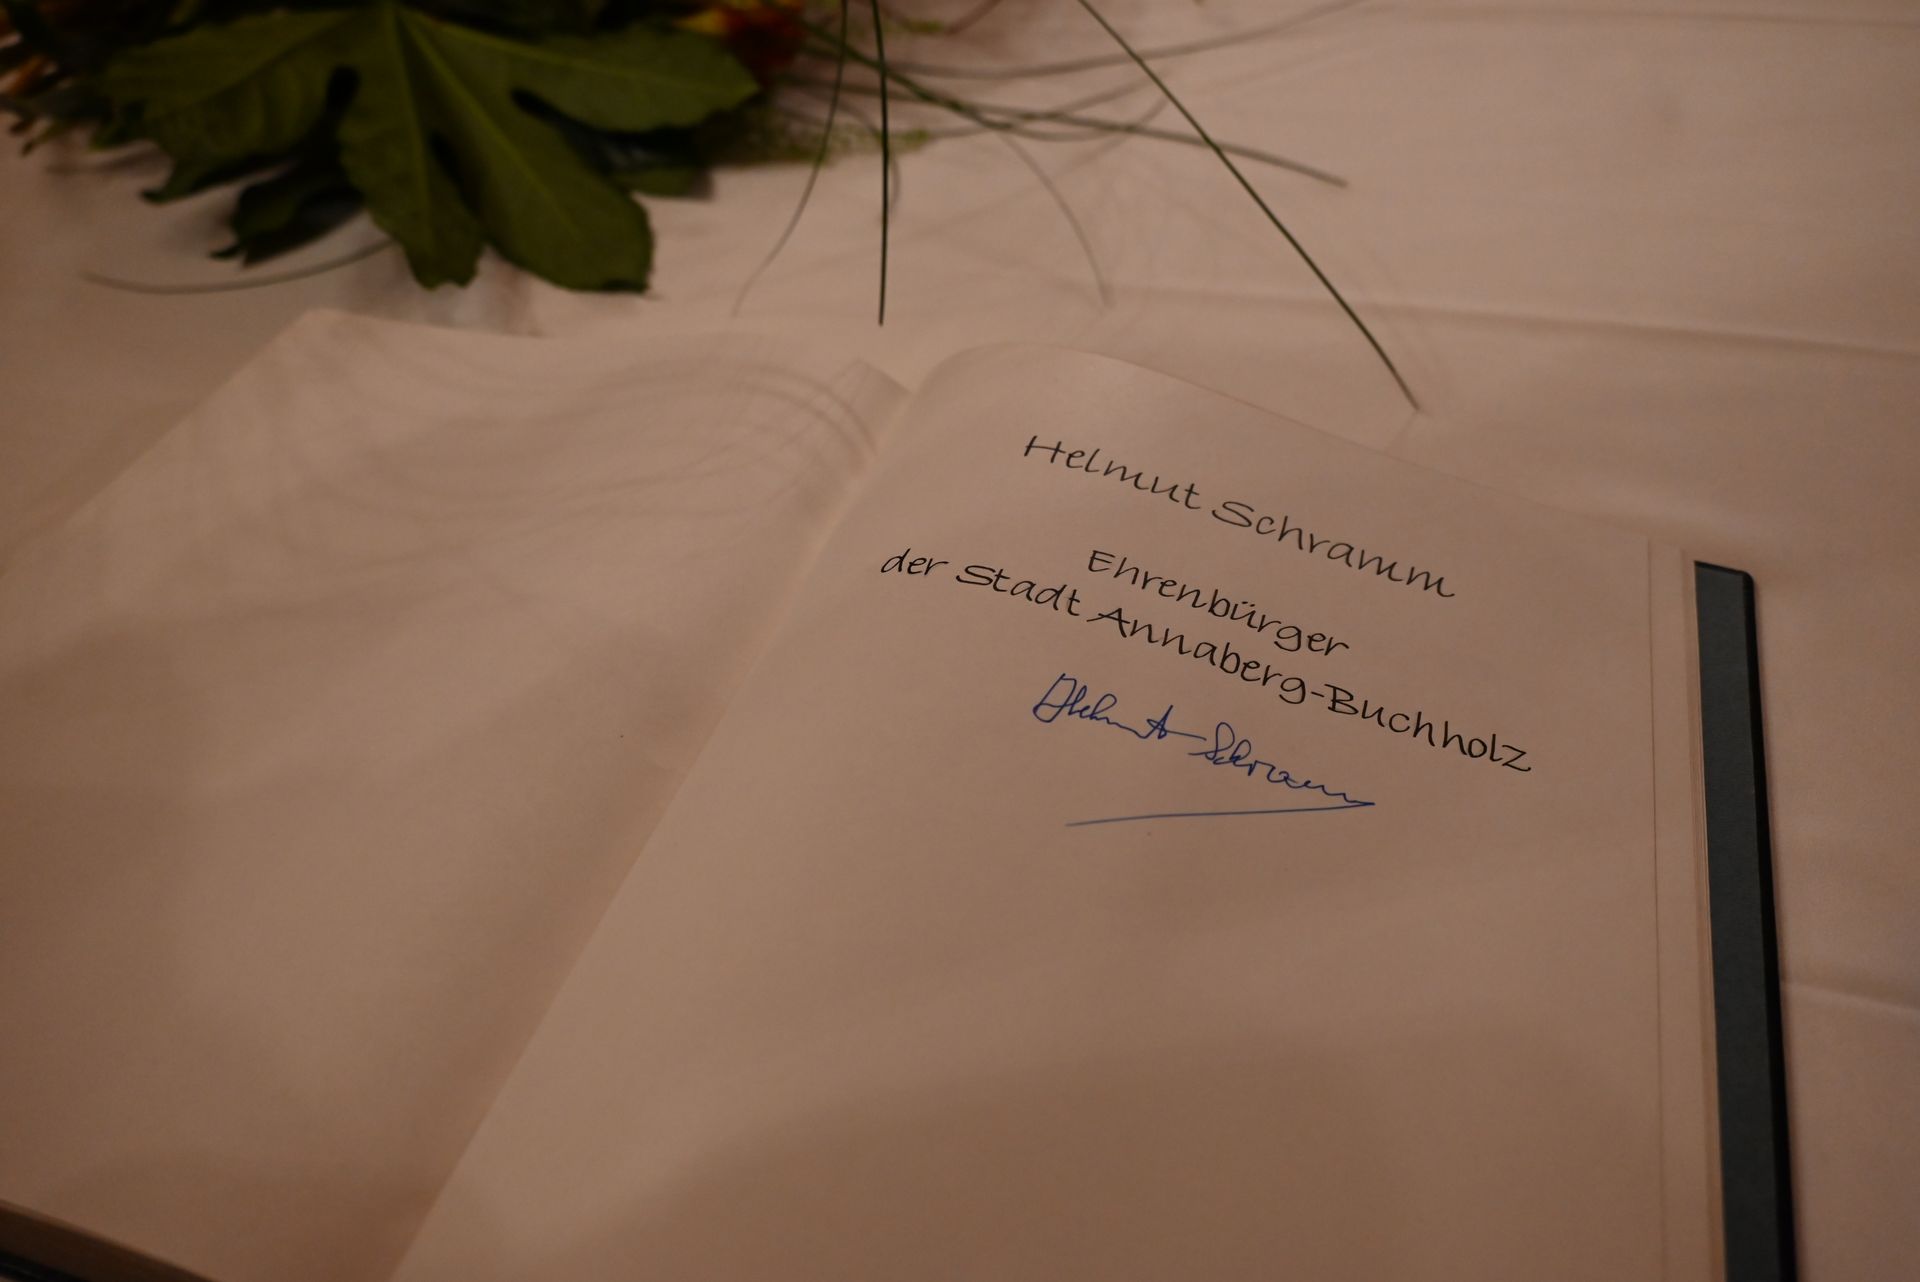 Helmut Schramm
Ehrenbürger
der Stadt Annaberg-Buchholz
Helmut Schramm